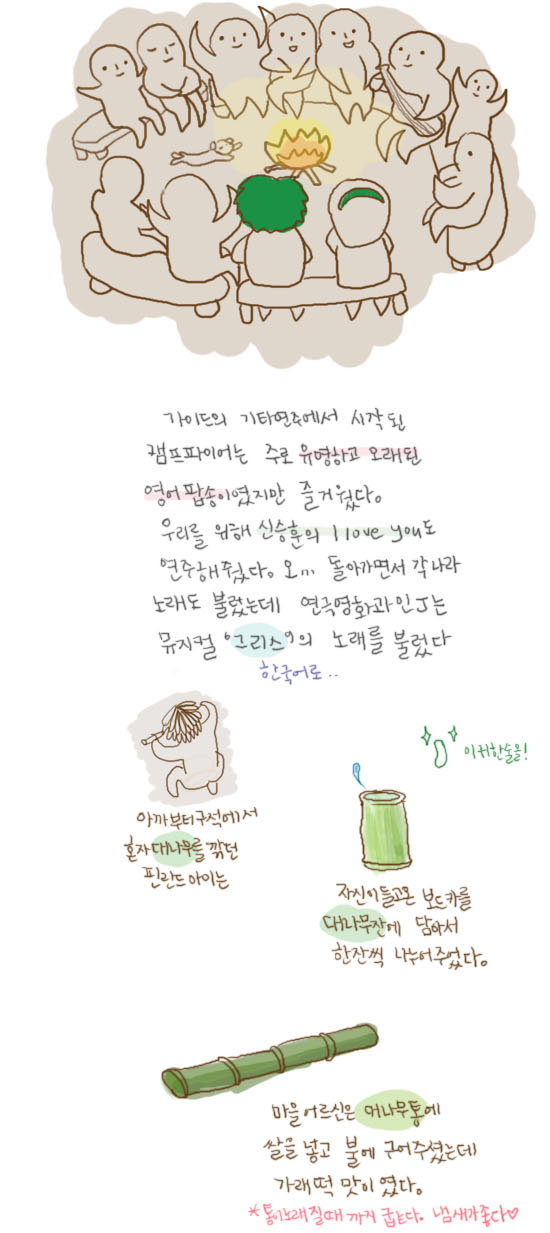 가이드의 기타연주에서 시작 된
캠프파이어는 주로 유명하고 오래된
영어 팝송이였지만 즐거웠다.
우리를 위해 신승훈의 I love you도
연주해줬다. 오... 돌아가면서 각나라
노래도 불렀는데 연극영화과인 J는
뮤지컬 "그리스"의 노래를 불렀다
한국어로..
이 귀한술을!
아까부터 구석에서
혼자 대나무를 깎던
핀란드 아이는
자신이 들고온 보드카를
대나무잔에 담아서
한잔씩 나누어주었다.
마을 어르신은 대나무통에
쌀을 넣고 불에 구어주셨는데
가래떡 맛이였다.
*통이 노래질때 까지 굽는다. 냄새가 좋다♡